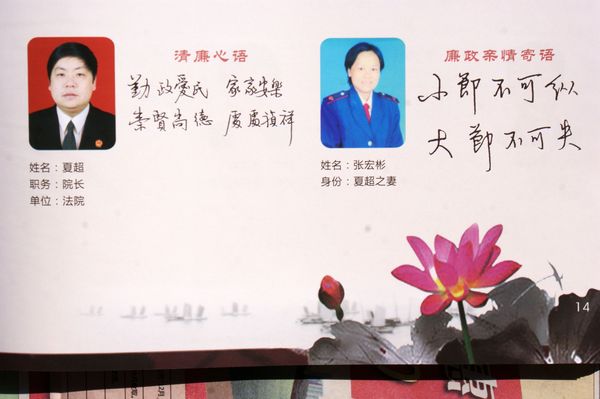 清廉心语
勤政爱民 家家安樂
崇賢尚德 處處禎祥
姓名：夏超
职务：院长
单位：法院
廉政亲情寄语
小節不可纵
大節不可失
姓名：张宏彬
身份：夏超之妻
14